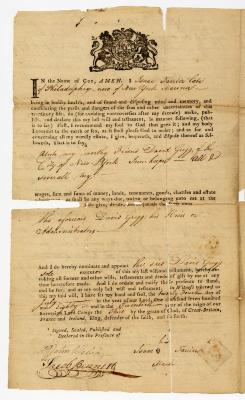 IN the Name of GOD, AMEN. I Isaac Fanier late
of Philadelphia, now of New York Mariner
being in bodily health, and of sound and disposing mind and memory, and
considering the perils and dangers of the seas and other uncertainties of this
transitory life, do (for avoiding controversies after my decease) make, pub-
lish, and declare this my last will and testament, in manner following, (that
is to say) first, I recommend my soul to God that gave it; and my body
I commit to the earth or sea, as it shall please God to order; and as for and
concerning all my worldly estate, I give, bequeath, and dispose thereof as fol-
loweth, that is to say,
unto my worthy Friend David Grigg of the
City of New York Inn keeper all &
several my
wages, sum and sums of money, lands, tenements, goods, chattles and estate
the aforesaid David Grigg his Heirs or
Administrators
And I do hereby nominate and appoint the said David Grigg
sole executor of this my last will and testament, hereby re-
voking all former and other wills, testaments and deeds of gift by me at any
time heretofore made. And I do ordain and ratify these presents to stand,
and be for and as my only last will and testament. In Witness whereof to
this my said will, I have set my hand and seal, the
July in the year of our Lord, one thousand seven hundred
and eighty and in the year of the reign of our
Sovereign Lord George the third by the grace of God, of Great-Britain,
France and Ireland, King, defender of the faith, and so forth.
Signed, Sealed, Published and
Declared in the Presence of
his
Isaac Fanier
mark